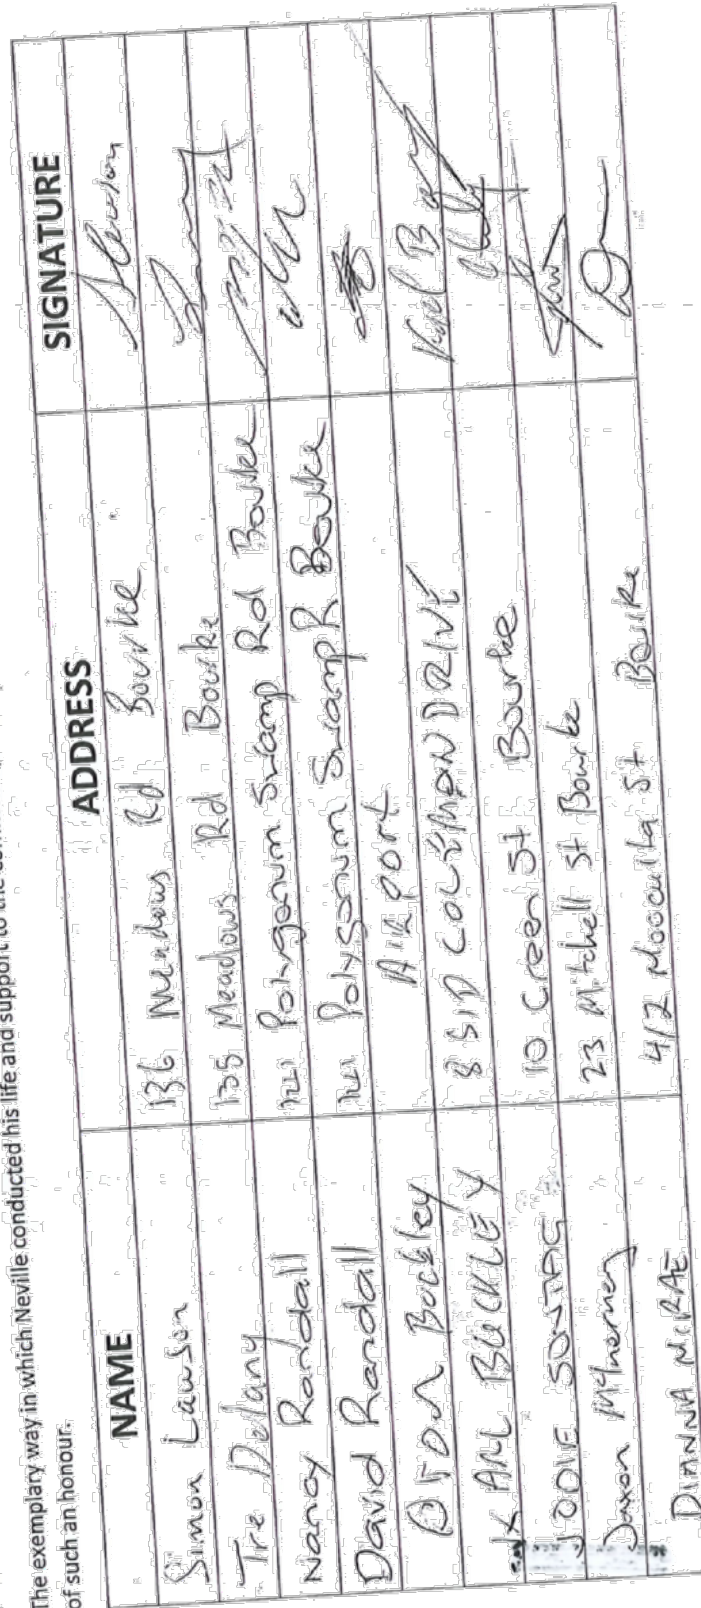 The exemplary way in which Neville conducted his life and support to the
of such an honour.
NAME ADDRESS SIGNATURE
Simon Lawson 136 Meadows Rd Bourke
Tre Delany 135 Meadows Rd Bourke
Nancy Randall 141 Polygonum Swamp Rd Bourke
David Randall 141 Polygonum Swamp R Bourke
Airport
8 SID COLEMAN DRIVE
JODIE SONTAG 10 Green St Bourke
Jaxon McInerney 23 Mitchell St Bourke
DIANNA McRAE 4/2 Mooculta St Bourke